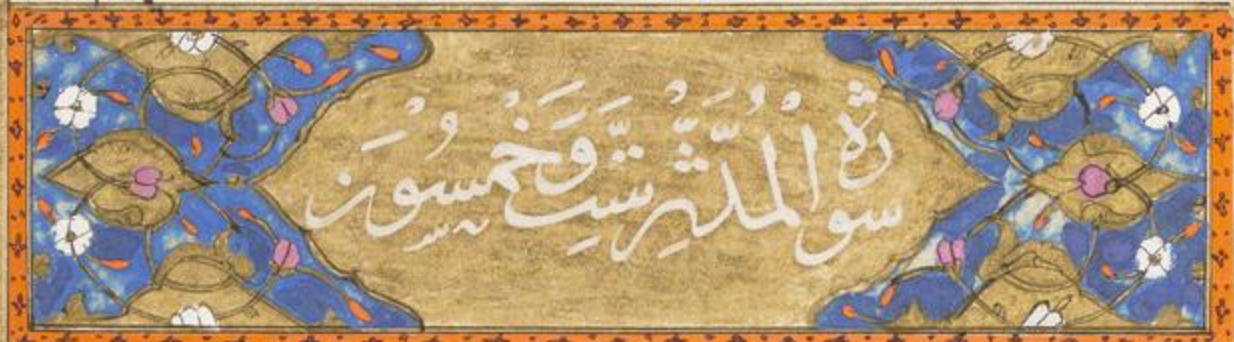 سورة المدثر ست وخمسون